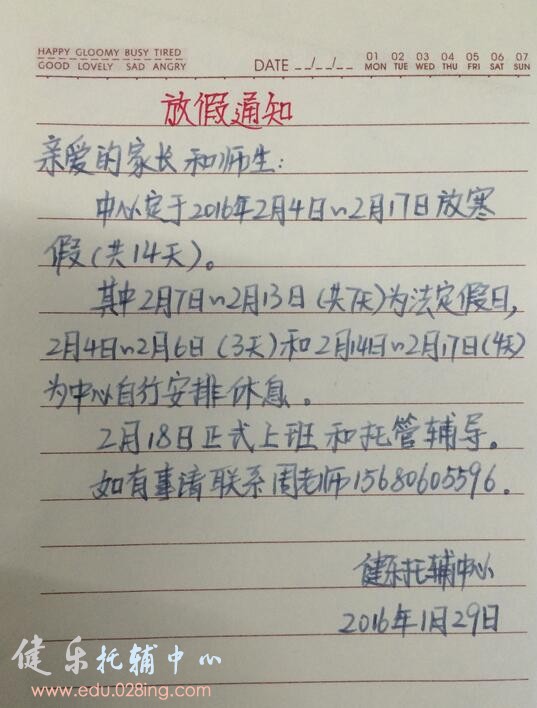 HAPPY GLOOMY BUSY TIRED
GOOD LOVELY SAD ANGRY
DATE _/_/_
01 02 03 04 05 06 07
MON TUE WED THU FRI SAT SUN
放假通知
亲爱的家长和师生:
中心定于2016年2月4日~2月17日放寒
假(共14天)。
其中2月7日~2月13日(共7天)为法定假日,
2月4日~2月6日(3天)和2月14日~2月17日(4天)
为中心自行安排休息。
2月18日正式上班和托管辅导。
如有事请联系周老师15680605596.
健乐托辅中心
2016年1月29日
健乐托辅中心
www.edu.028ing.com